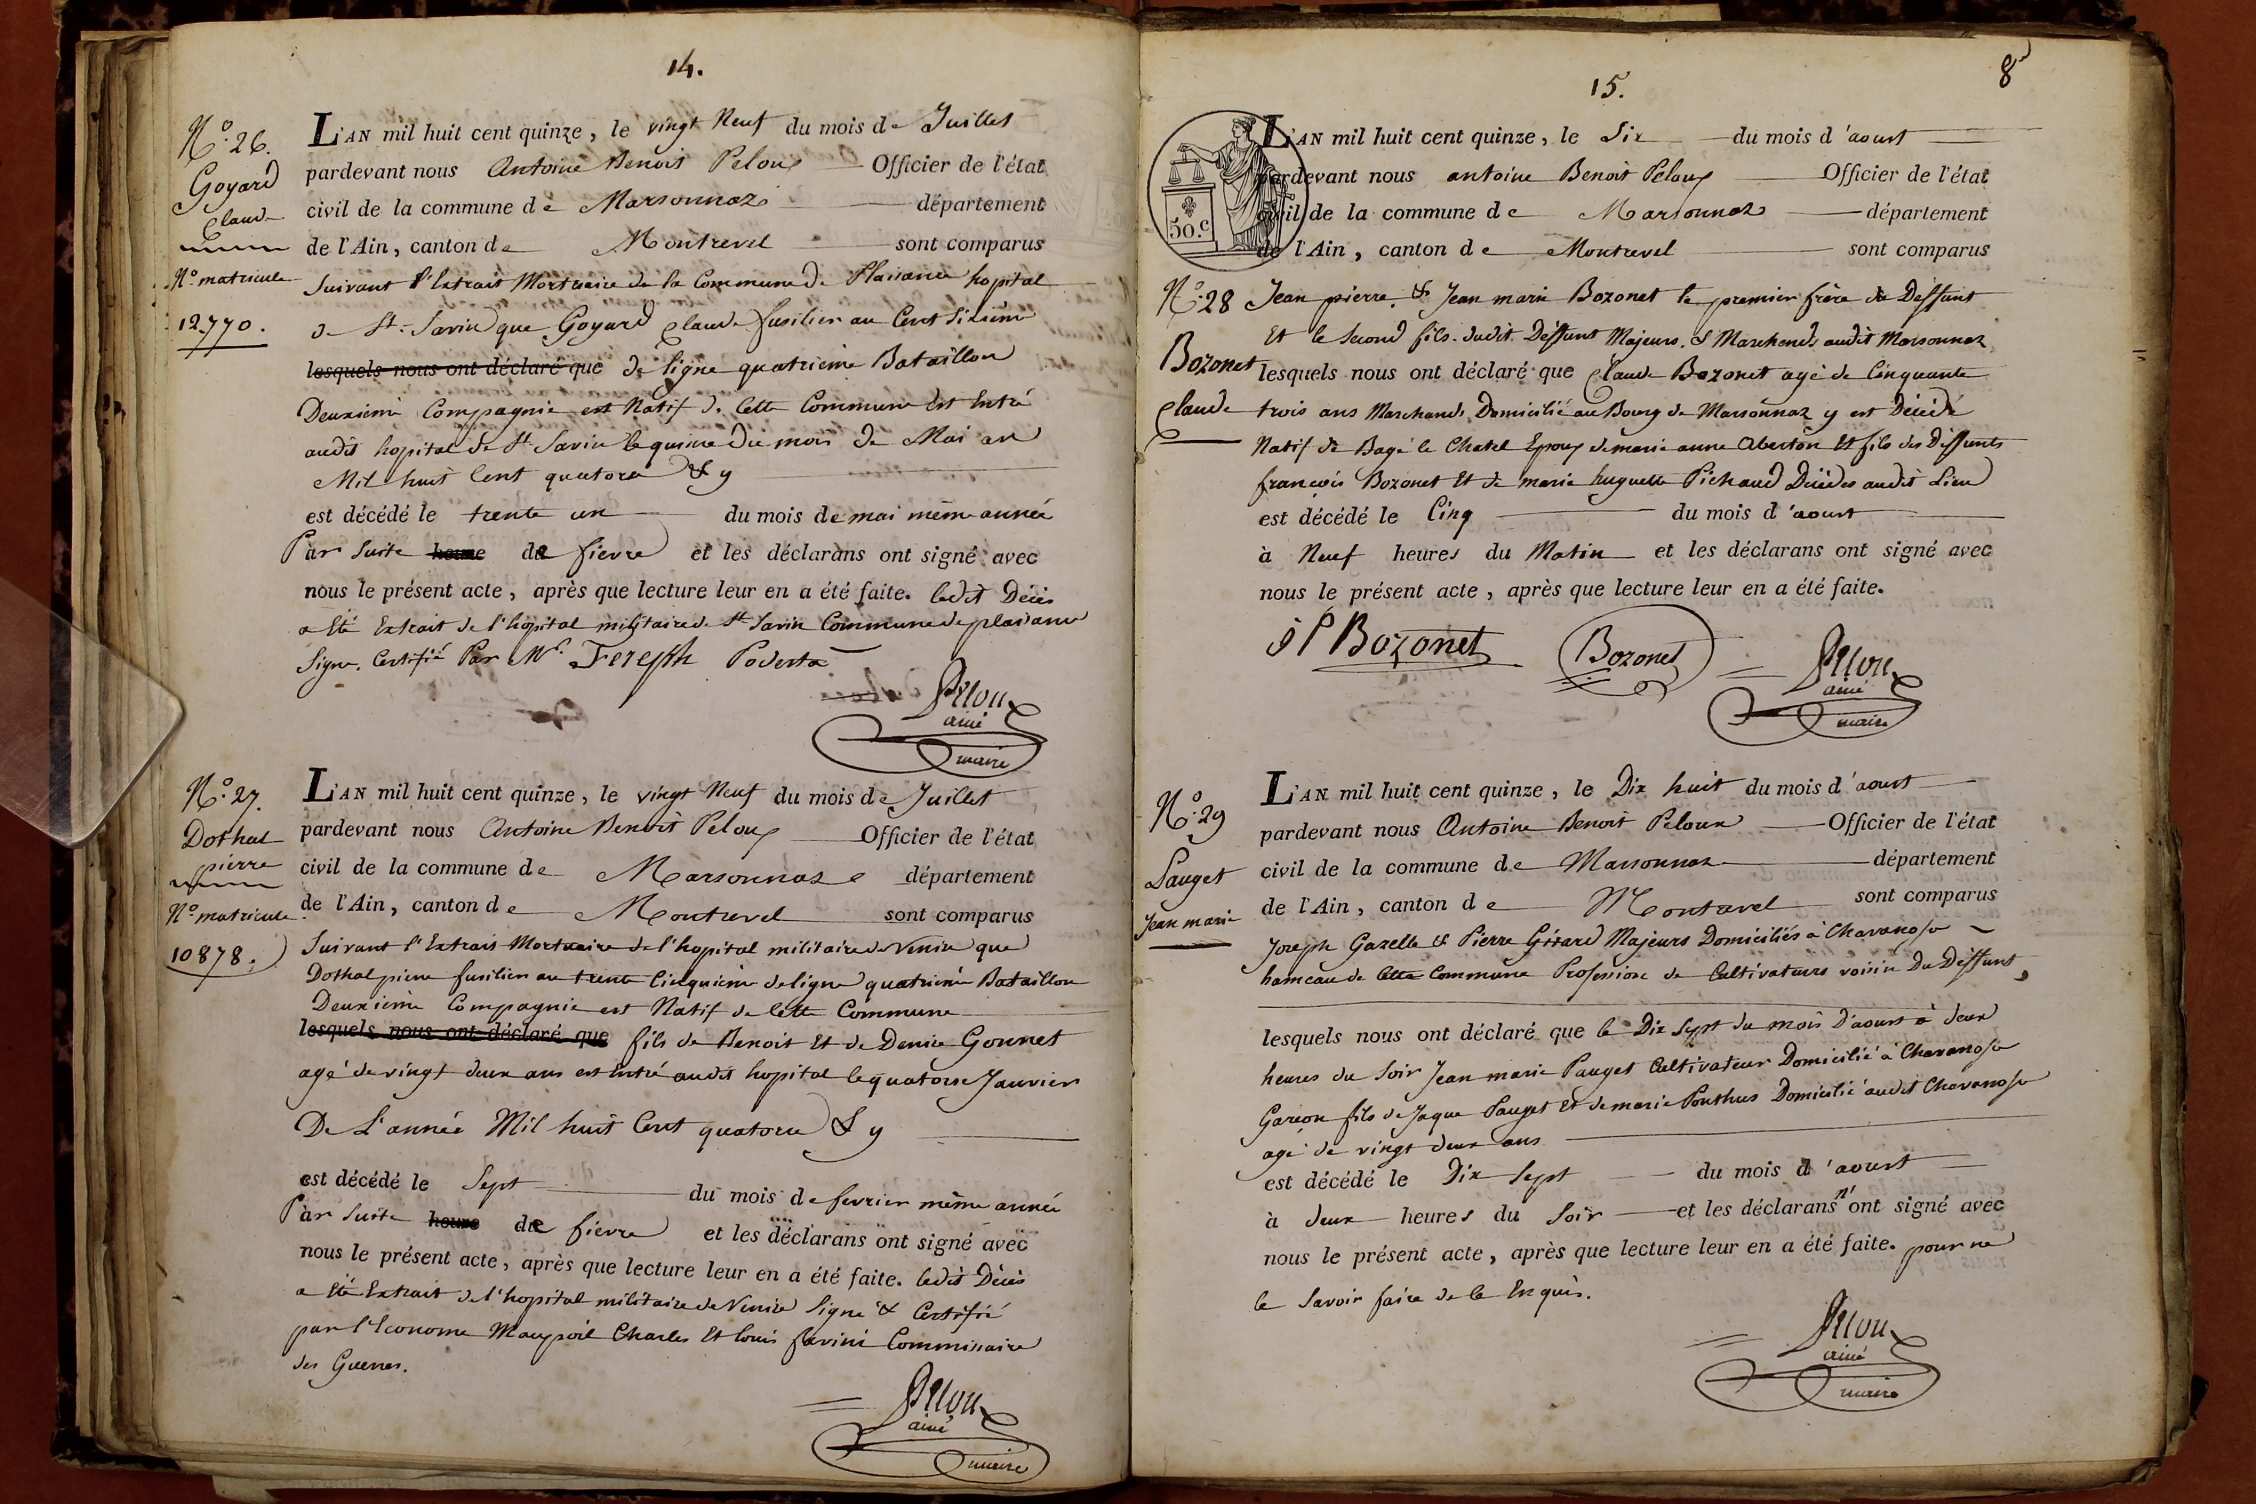 14.
N.º 26.
Goyard
Claude
Nº matricule
12770.
L'AN mil huit cent quinze, le vingt Neuf du mois de Juillet
pardevant nous Antoine Benoit Peloux Officier de l'état
civil de la commune de Marsonnaz département
de l'Ain, canton de Montrevel sont comparus
Suivant l'Extrait Mortuaire de la Commune de Plaisance hopital
de St. Savin que Goyard Claude fusilier au Cent Sixieme
lesquels nous ont déclaré que de ligne quatrieme Bataillon
Deuxieme Compagnie est Natif de Cette Commune est Entré
audit hopital de St Savin le quinze du mois de Mai an
Mil huit Cent quatorze & y
est décédé le trente un du mois de mai même année
Par Suite heure de fievre et les déclarans ont signé avec
nous le présent acte, après que lecture leur en a été faite. ledit Décès
a Eté Extrait de l'hopital militaire de St Savin Commune de plaisance
Signé. Certifié Par Mr. Podesta
Peloux
ainé
maire
N.º 27.
Dothal
pierre
Nº matricule
10878.
L'AN mil huit cent quinze, le vingt Neuf du mois de Juillet
pardevant nous Antoine Benoit Peloux Officier de l'état
civil de la commune de Marsonnaz département
de l'Ain, canton de Montrevel sont comparus
Suivant l'Extrait Mortuaire de l'hopital militaire de Venise que
Dothal pierre fusilier au trente Cinquieme de ligne quatrieme Bataillon
Deuxieme Compagnie est Natif de Cette Commune
lesquels nous ont déclaré que fils de Benoit Et de Denise Gonnet
agé de vingt deux ans est Entré audit hopital le quatorze Janvier
De L'année Mil huit Cent quatorze & y
est décédé le Sept du mois de fevrier même année
Par Suite heure de fievre et les déclarans ont signé avec
nous le présent acte, après que lecture leur en a été faite. ledit Décès
a Eté Extrait de l'hopital militaire de Venise Signé & Certifié
par l'Econome Maupoil Charles Et louis favini Commissaire
des Guerres.
Peloux
ainé
maire
15.
8
50.c
L'AN mil huit cent quinze, le Six du mois d'aoust
pardevant nous antoine Benoit Peloux Officier de l'état
civil de la commune de Marsonnaz département
de l'Ain, canton de Montrevel sont comparus
N.º 28
Bozonet
Claude
Jean pierre & Jean marie Bozonet le premier frère du Deffunt
Et le Second fils dudit Deffunt Majeurs & Marchends audit Marsonnaz
lesquels nous ont déclaré que Claude Bozonet agé de Cinquante
trois ans Marchand Domicilié au Bourg de Marsonnaz y est Décédé
Natif de Bagé le Chatel Epoux de marie anne Aberton Et fils des Deffunts
françois Bozonet Et de marie huguette Pichaud Décédés audit Lieu
est décédé le Cinq du mois d'aoust
à Neuf heures du Matin et les déclarans ont signé avec
nous le présent acte, après que lecture leur en a été faite.
J P Bozonet
Bozonet
Peloux
ainé
maire
N.º 29
Pauget
Jean marie
L'AN mil huit cent quinze, le Dix huit du mois d'aoust
pardevant nous Antoine Benoit Peloux Officier de l'état
civil de la commune de Marsonnaz département
de l'Ain, canton de Montrevel sont comparus
Joseph Gazelle & Pierre Girard Majeurs Domiciliés à Chavanosse
hameau de Cette Commune Profession de Cultivateurs voisin Du Deffunt,
lesquels nous ont déclaré que le Dix Sept du mois D'aoust à deux
heures du Soir Jean marie Pauget Cultivateur Domicilié à Chavanosse
Garcon fils de Jaque Pauget Et de marie Ponthus Domicilié audit Chavanosse
agé de vingt deux ans
est décédé le Dix Sept du mois d'aoust
à deux heures du Soir et les déclarans n'ont signé avec
nous le présent acte, après que lecture leur en a été faite. pour ne
le Savoir faire de Ce Enquis.
Peloux
ainé
maire